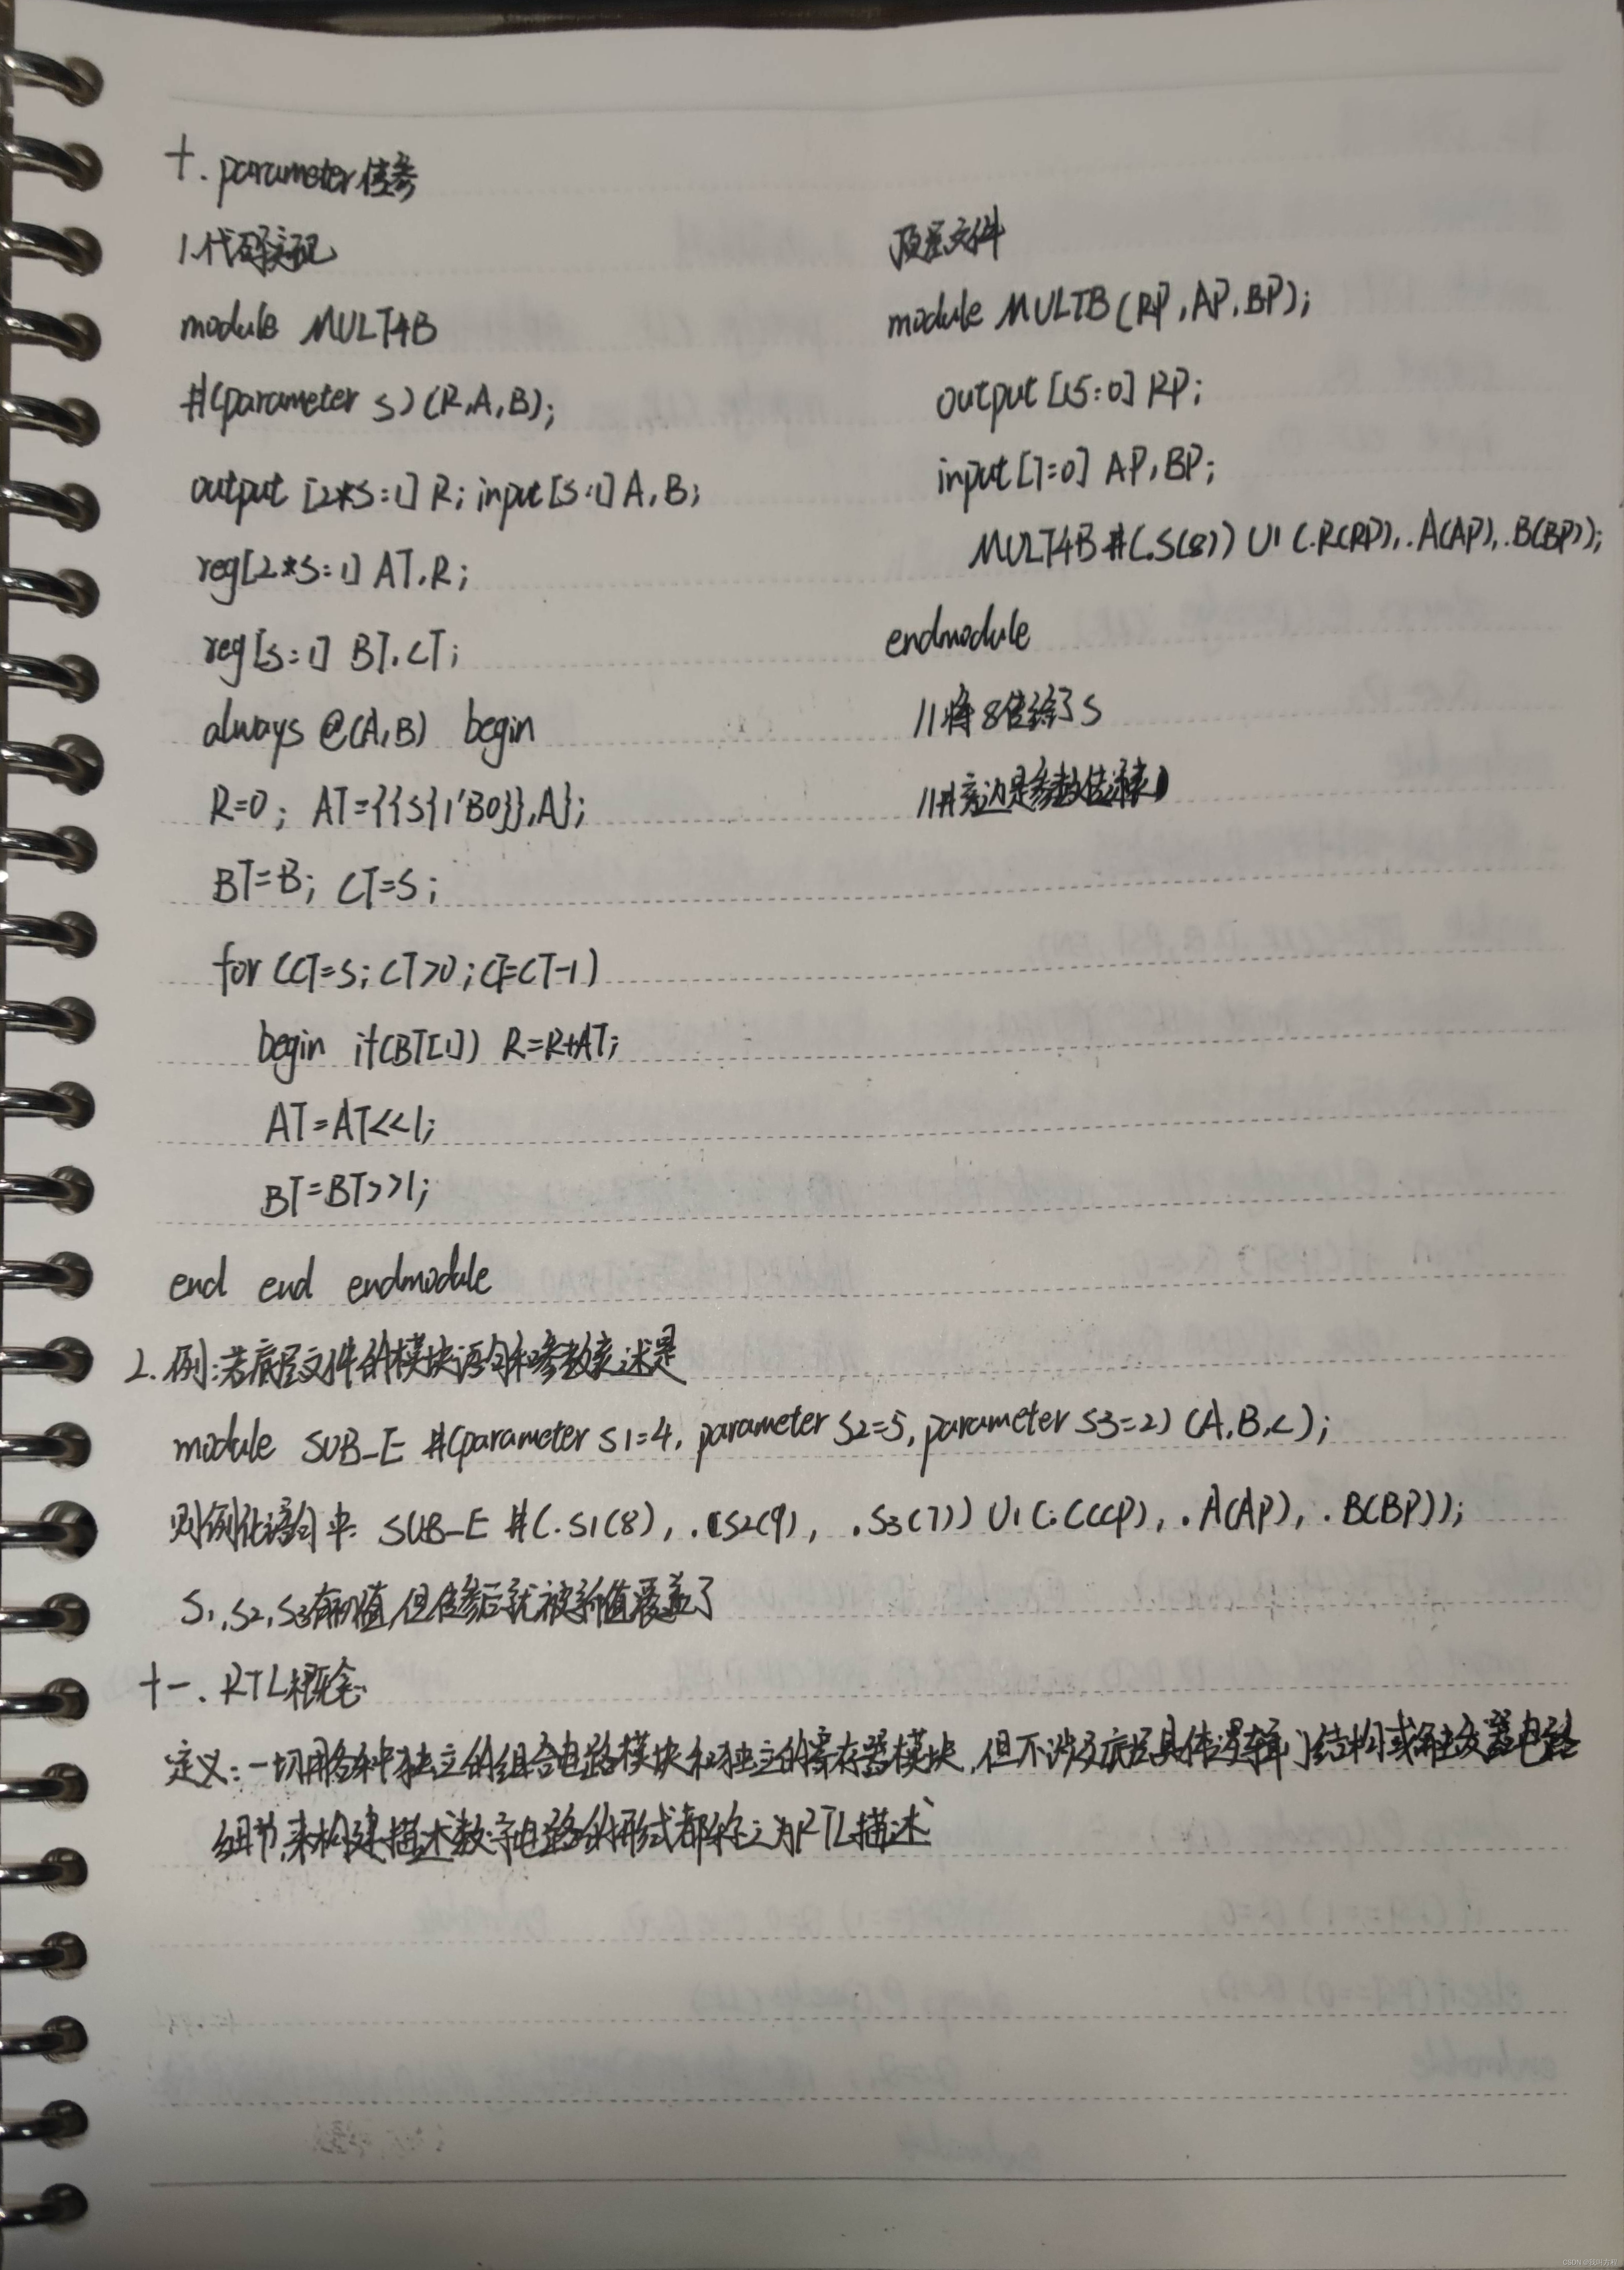 十. parameter传参
1.代码实现
module MULT4B
#(parameter S)(R,A,B);
output [2*S:1] R; input[S:1] A,B;
reg[2*S:1] AT,R;
reg[S:1] BT,CT;
always @(A,B) begin
R=0; AT={{S{1'B0}},A};
BT=B; CT=S;
for (CT=S; CT>0; CT=CT-1)
begin if(BT[1]) R=R+AT;
AT=AT<<1;
BT=BT>>1;
end end endmodule
顶层文件
module MULTB(RP,AP,BP);
output [15:0] RP;
input[7:0] AP,BP;
MULT4B #(.S(8)) U1 (.R(RP),.A(AP),.B(BP));
endmodule
//将8传给了S
//#旁边是参数传递
2.例:若底层文件的模块语句和参数表述是
module SUB_E #(parameter S1=4, parameter S2=5, parameter S3=2) (A,B,C);
则例化语句中: SUB_E #(.S1(8), .(S2(9), .S3(7)) U1(.C(CP), .A(AP), .B(BP));
S1,S2,S3有初值,但传参后就被新值覆盖了
十一. RTL概念
定义:一切用各种独立的组合电路模块和独立的寄存器模块,但不涉及底层具体逻辑门结构或触发器电路
细节,来构建描述数字电路的形式都称之为RTL描述